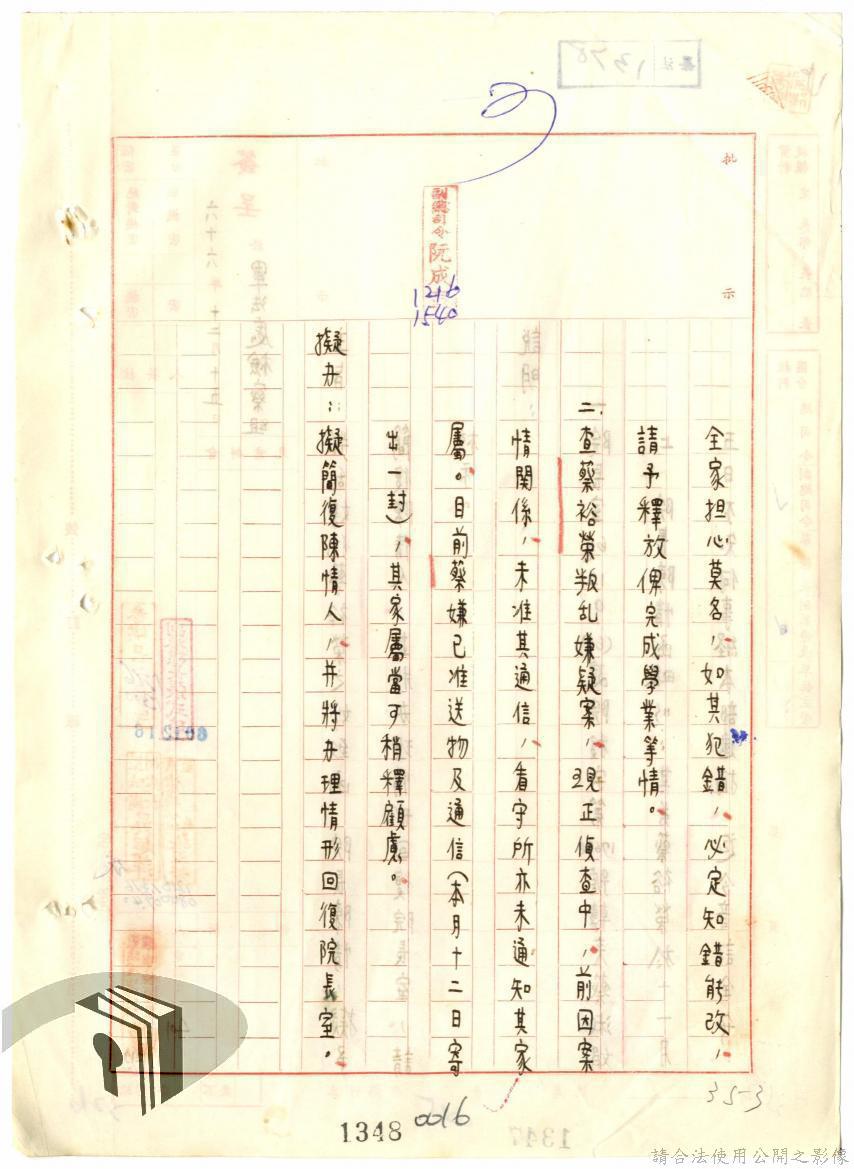 1378
批
示
副總司令阮成
1216
1540
全家担心莫名，如其犯錯，必定知錯能改，
請予釋放俾完成學業等情。
二、查蔡裕榮叛乱嫌疑案，現正偵查中，前因案
情關係，未准其通信，看守所亦未通知其家
屬。目前蔡嫌已准送物及通信（本月十二日寄
出一封），其家屬當可稍釋顧慮。
擬办：擬簡復陳情人，并將办理情形回復院長室。
35-3
1348
0016
請合法使用公開之影像